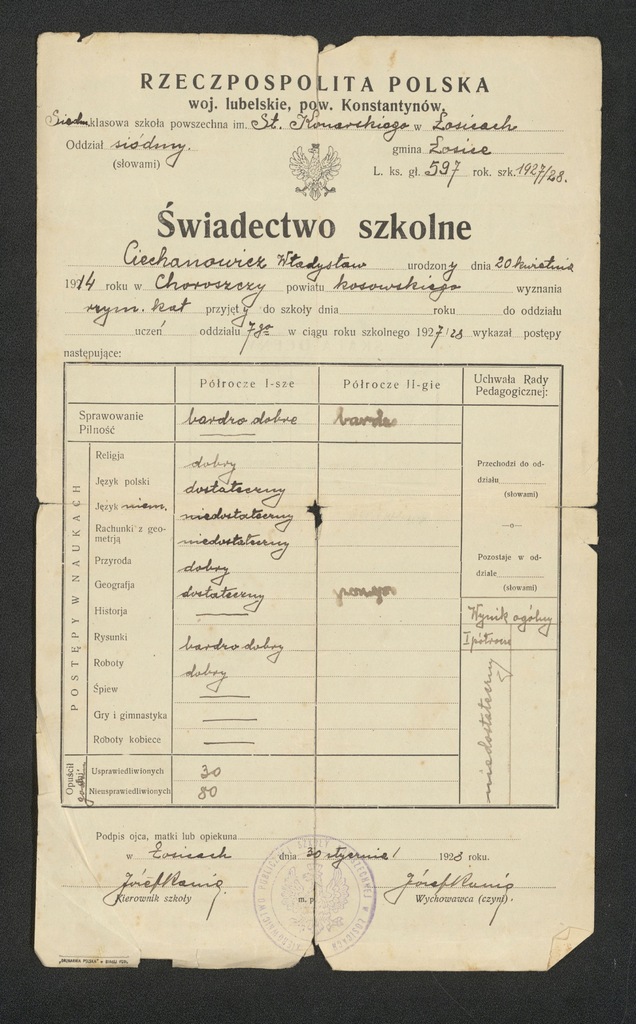 RZECZPOSPOLITA POLSKA
woj. lubelskie, pow. Konstantynów,
Siedm.klasowa szkoła powszechna im. St. Konarskiego w Łosicach
Oddział siódmy. gmina Łosice
(słowami)
L. ks. gł. 597 rok. szk. 1927/28.
Świadectwo szkolne
Ciechanowicz Władysław urodzony dnia 20 kwietnia
1914 roku w Choroszczy powiatu kosowskiego wyznania
rzym. kat przyjęty do szkoły dnia roku do oddziału
uczeń oddziału 7go w ciągu roku szkolnego 1927/28 wykazał postępy
następujące:
Półrocze I-sze Półrocze II-gie Uchwała Rady Pedagogicznej:
Sprawowanie bardzo dobre
Pilność
POSTĘPY W NAUKACH
Religja dobry
Język polski dostateczny
Język niem. niedostateczny
Rachunki z geometrją niedostateczny
Przyroda dobry
Geografja dostateczny
Historja
Rysunki bardzo dobry
Roboty dobry
Śpiew
Gry i gimnastyka
Roboty kobiece
Przechodzi do oddziału
(słowami)
—o—
Pozostaje w oddziale
(słowami)
Wynik ogólny
I półrocze
niedostateczny
Opuścił godz.
Usprawiedliwionych 30
Nieusprawiedliwionych 80
Podpis ojca, matki lub opiekuna
w Łosicach dnia 30 stycznia 1928 roku.
Józef Kunig Józef Kunig
Kierownik szkoły m. p. Wychowawca (czyni).